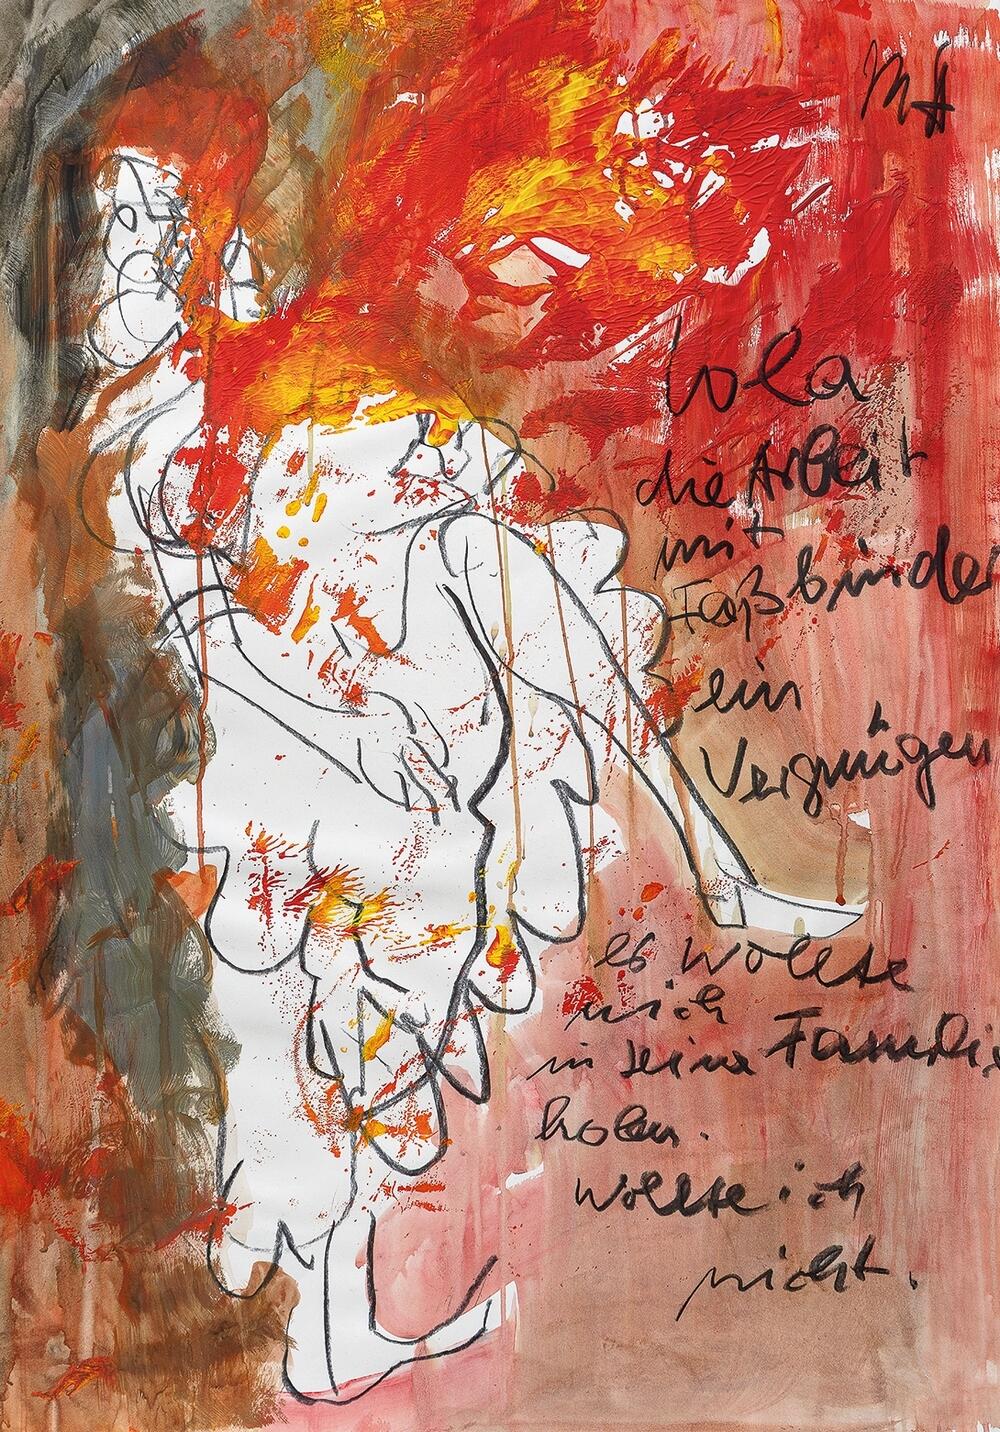 MA
Lola
die Arbeit
mit
Faßbinder
ein
Vergnügen
es wollte
mich
in seine Familie
holen.
Wollte ich
nicht.